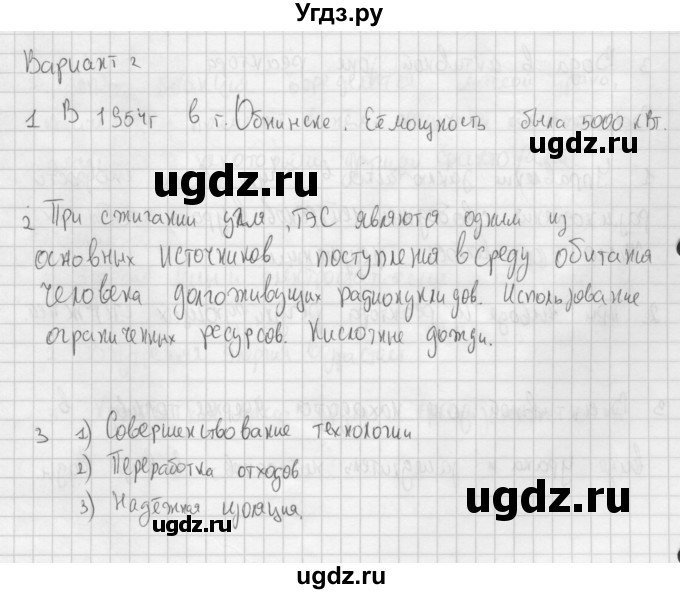 Угдз.ру
Вариант 2
1 В 1954г в г. Обнинске. Её мощность была 5000 кВт.
ugdz.ru ugdz.ru
2 При сжигании угля, ТЭС являются одним из
основных источников поступления в среду обитания
человека долгоживущих радионуклидов. Использование
ограниченных ресурсов. Кислотные дожди.
ugdz.ru
3 1) Совершенствование технологии
2) Переработка отходов
ugdz.ru
3) Надёжная изоляция
ugdz.ru
ugdz.ru